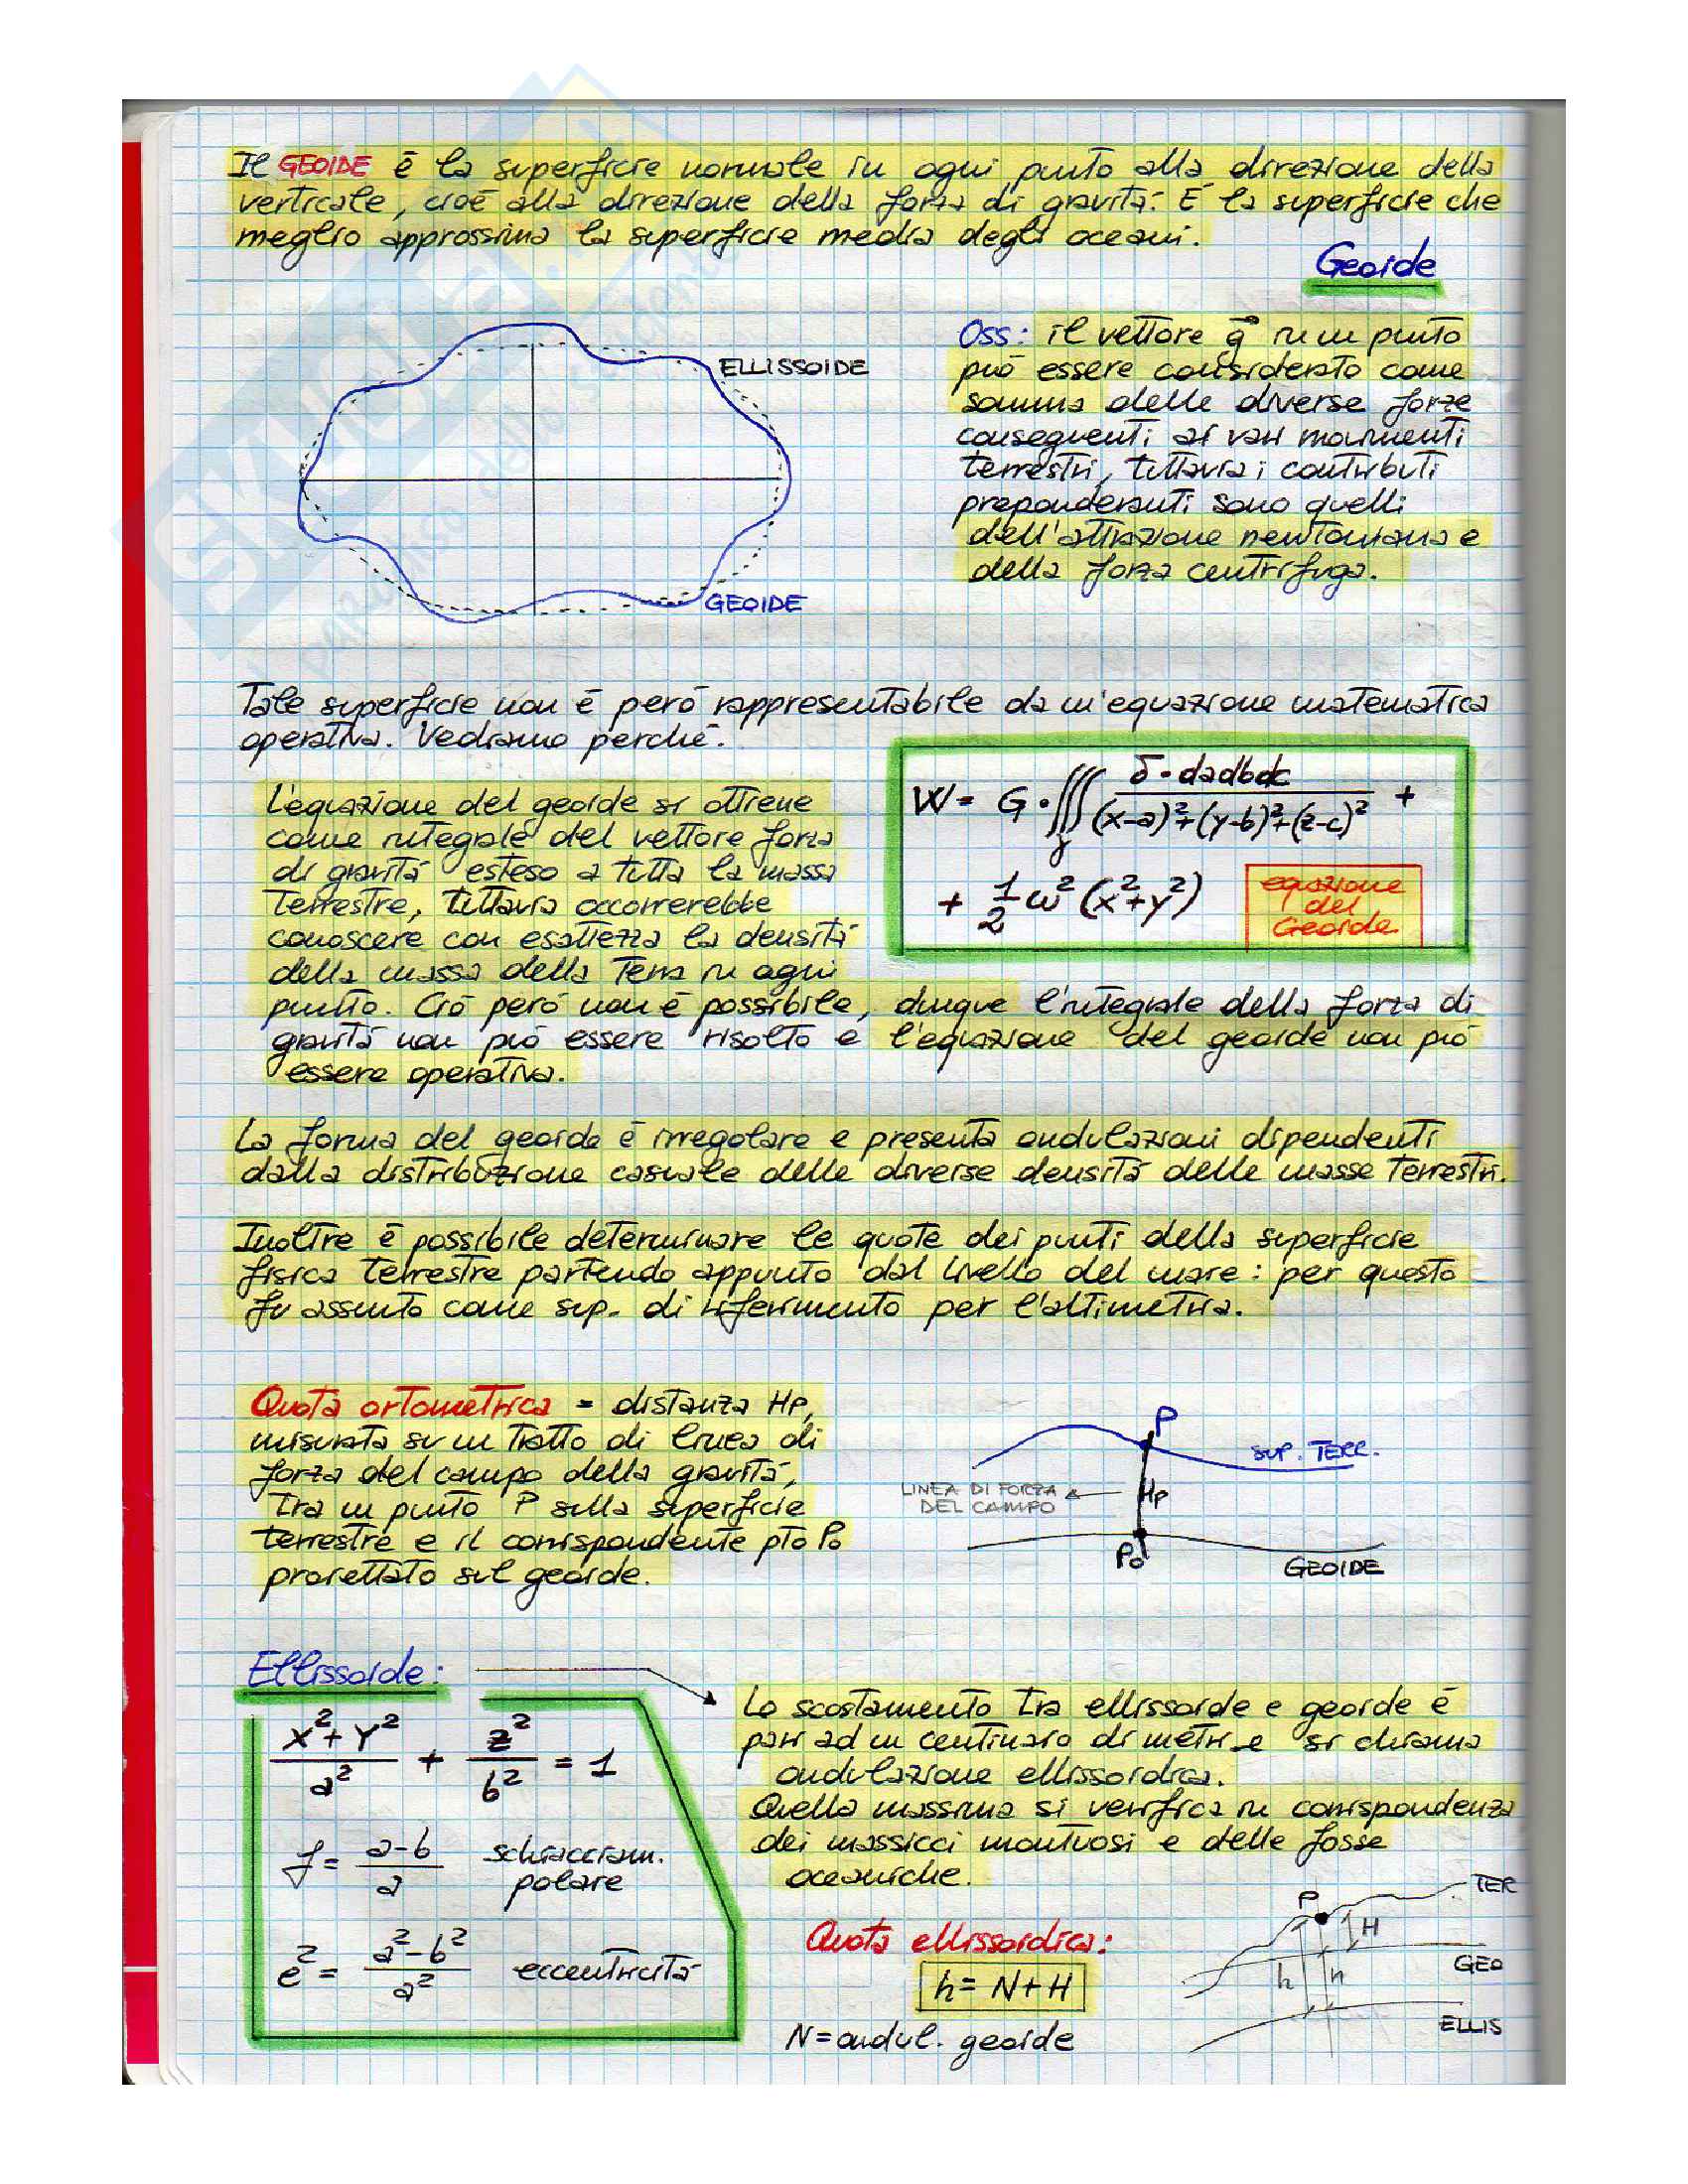 Il GEOIDE è la superficie normale in ogni punto alla direzione della
verticale, cioè alla direzione della forza di gravità. È la superficie che
meglio approssima la superficie media degli oceani.
Geoide
ELLISSOIDE
GEOIDE
Oss: il vettore g⃗ in un punto
può essere considerato come
somma delle diverse forze
conseguenti ai vari movimenti
terrestri, tuttavia i contributi
preponderanti sono quelli
dell'attrazione newtoniana e
della forza centrifuga.
Tale superficie non è però rappresentabile da un'equazione matematica
operativa. Vediamo perché.
L'equazione del geoide si ottiene
come integrale del vettore forza
di gravità esteso a tutta la massa
Terrestre, tuttavia occorrerebbe
conoscere con esattezza la densità
della massa della Terra in ogni
punto. Ciò però non è possibile, dunque l'integrale della forza di
gravità non può essere risolto e l'equazione del geoide non può
essere operativa.
W = G · ∭ δ · da db dc / (x-a)²+(y-b)²+(z-c)² +
+ 1/2 ω² (x²+y²)
equazione
del
Geoide
La forma del geoide è irregolare e presenta ondulazioni dipendenti
dalla distribuzione casuale delle diverse densità delle masse Terrestri.
Inoltre è possibile determinare le quote dei punti della superficie
fisica terrestre partendo appunto dal livello del mare: per questo
fu assunto come sup. di riferimento per l'altimetria.
Quota ortometrica = distanza Hp,
misurata su un tratto di linea di
forza del campo della gravità,
tra un punto P sulla superficie
terrestre e il corrispondente pto P₀
proiettato sul geoide.
P
SUP. TERR.
LINEA DI FORZA
DEL CAMPO
Hp
P₀
GEOIDE
Ellissoide:
x²+y² / a² + z² / b² = 1
f = a-b / a schiacciam.
polare
e² = a²-b² / a² eccentricità
Lo scostamento tra ellissoide e geoide è
pari ad un centinaio di metri e si chiama
ondulazione ellissoidica.
Quella massima si verifica in corrispondenza
dei massicci montuosi e delle fosse
oceaniche.
Quota ellissoidica:
h = N+H
N = ondul. geoide
P
TER
H
GEO
h
n
ELLIS